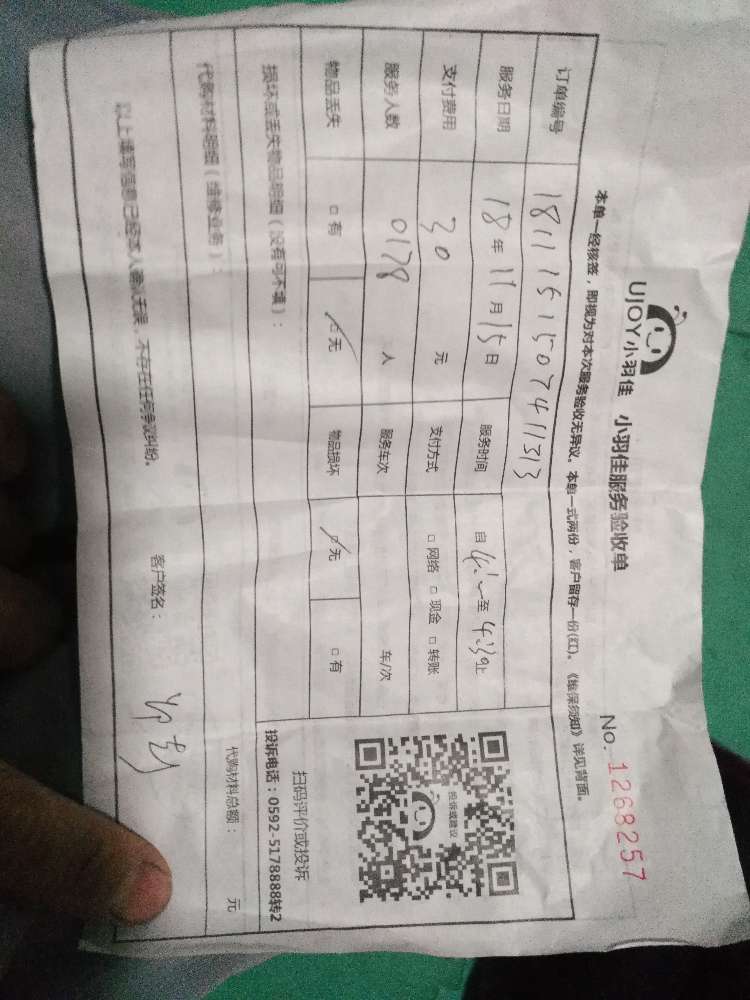 UJOY小羽佳 小羽佳服务验收单 No. 1268257
本单一经核签，即视为对本次服务验收无异议。本单一式两份，客户留存一份(红)。《维保须知》详见背面。
订单编号 1811151507411313
服务日期 18年11月15日 服务时间 自 至 止
支付费用 30 元 支付方式 □ 网络 □ 现金 □ 转账
服务人数 0178 人 服务车次 车/次
物品丢失 □ 有 ☑ 无 物品损坏 ☑ 无 □ 有
损坏或丢失物品明细（没有可不填）：
投诉或建议
扫码评价或投诉
投诉电话：0592-5178888转2
代购材料明细（维修业务）： 代购材料总额： 元
以上填写信息已经本人确认无误，不存在任何争议纠纷。 客户签名：